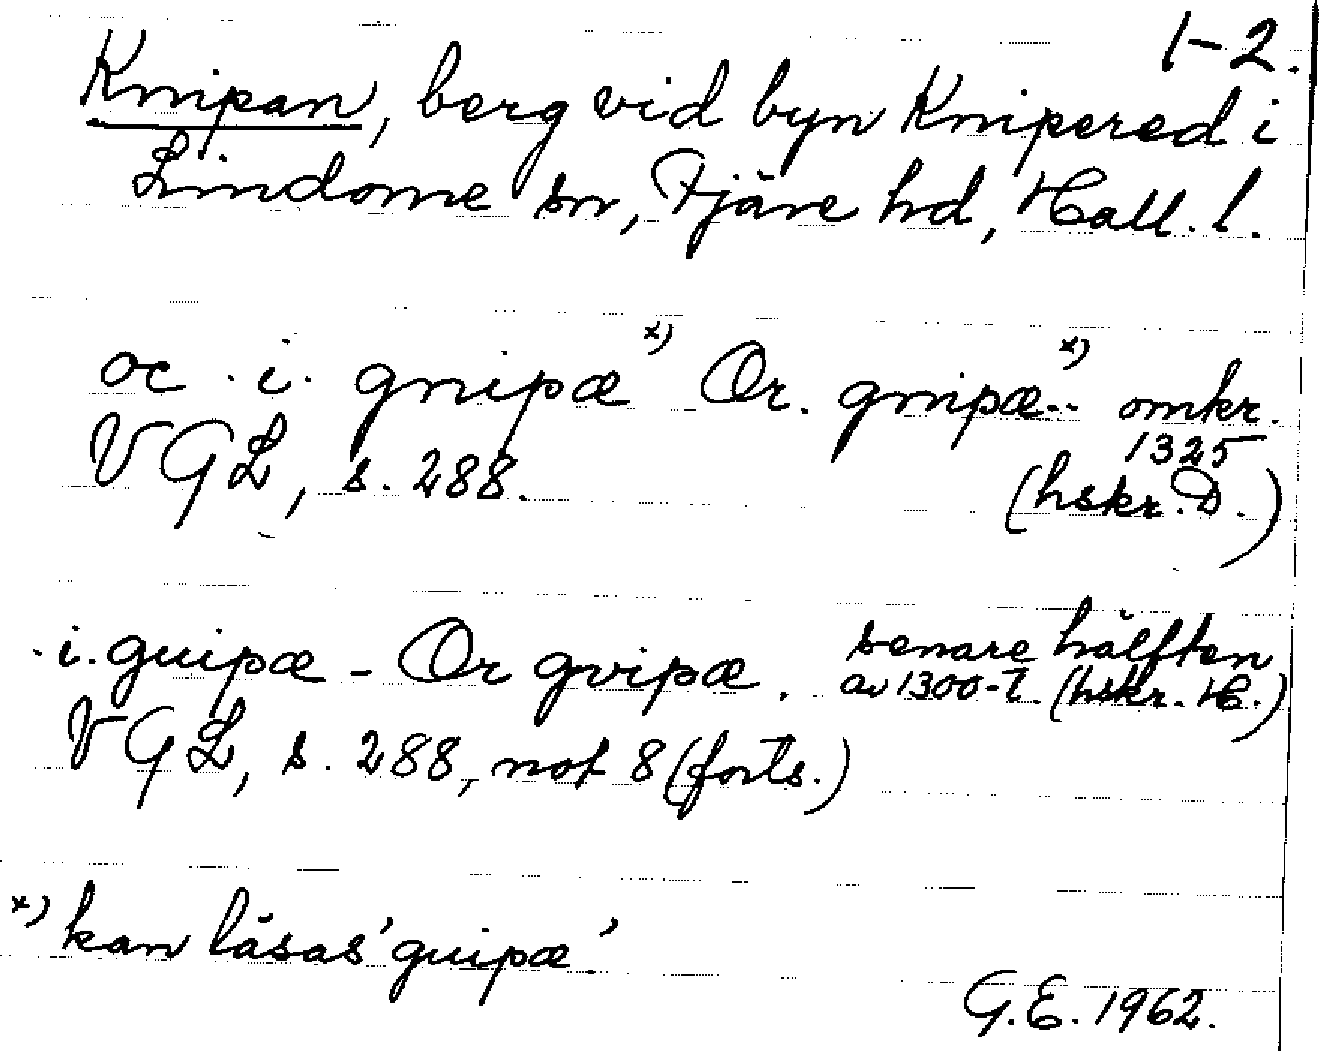 1-2.
Knipan, berg vid byn Knipered i
Lindome sn, Fjäre hd, Hall. l.
oc . i . gnipæ x) Or. gnipæ.. x) omkr.
1325
VGL, s. 288. (hskr. D.)
. i. guipæ - Or gvipæ . senare hälften
av 1300-t. (hskr. H.)
VGL, s. 288, not 8 (forts.)
x) kan läsas 'guipæ'
G.E. 1962.